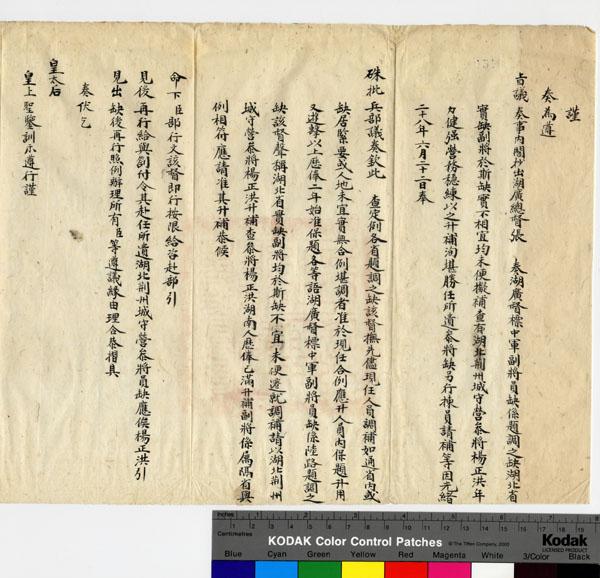 謹
奏為遵
旨議奏事内閣抄出湖廣總督張 奏湖廣督標中軍副將員缺係題調之缺湖北省
實缺副將於斯缺實不相宜均未便擬補查有湖北荆州城守營叅將楊正洪年
力健強營務穩練以之升補洵堪勝任所遺叅將缺另行揀員請補等因光緒
二十八年六月二十二日奉
硃批兵部議奏欽此 查定例各省題調之缺該督撫先儘現任人員調補如通省内或
缺居緊要或人地未宜實無合例堪調者准於現任合例應升人員内保題升用
又遊擊以上歷俸二年始准保題各等語湖廣督標中軍副將員缺係陸路題調之
缺該督聲稱湖北省實缺副將均於斯缺不宜未便遷就調補請以湖北荆州
城守營叅將楊正洪升補查叅將楊正洪湖南人歷俸已滿升補副將係屬隔省與
例相符應請准其升補恭候
命下臣部行文該督即行按限給咨赴部引
見後再行給與劄付令其赴任所遺湖北荆州城守營叅將員缺應俟楊正洪引
見出缺後再行照例辦理所有臣等遵議緣由理合恭摺具
奏伏乞
皇太后
皇上聖鑒訓示遵行謹
Inches 1 2 3 4 5 6 7 8
Centimetres 1 2 3 4 5 6 7 8 9 10 11 12 13 14 15 16 17 18 19
KODAK Color Control Patches
© The Tiffen Company, 2000
Kodak
LICENSED PRODUCT
Blue Cyan Green Yellow Red Magenta White 3/Color Black